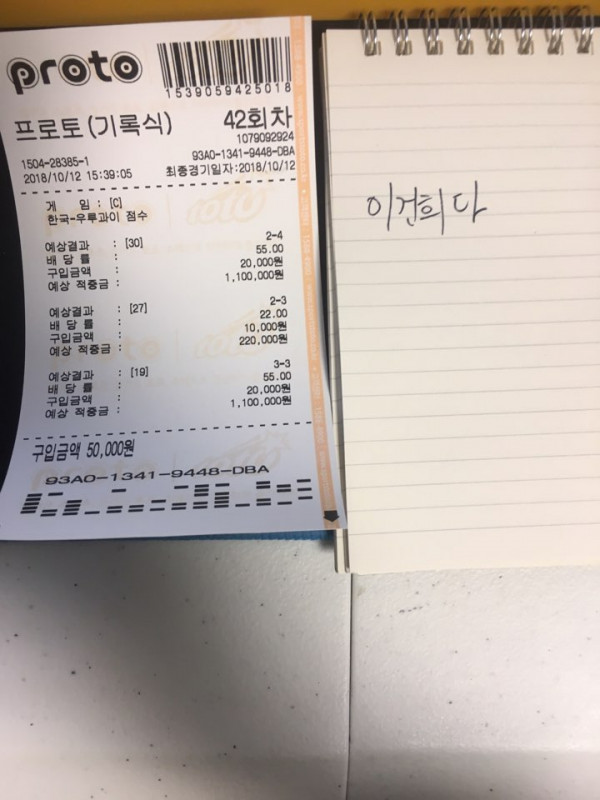 proto
1539059425018
프로토(기록식) 42회차
1079092924
1504-28385-1 93A0-1341-9448-DBA
2018/10/12 15:39:05 최종경기일자:2018/10/12
게 임 : [C]
한국-우루과이 점수
예상결과 : [30] 2-4
배 당 률 : 55.00
구입금액 : 20,000원
예상 적중금 : 1,100,000원
예상결과 : [27] 2-3
배 당 률 : 22.00
구입금액 : 10,000원
예상 적중금 : 220,000원
예상결과 : [19] 3-3
배 당 률 : 55.00
구입금액 : 20,000원
예상 적중금 : 1,100,000원
구입금액 50,000원
93A0-1341-9448-DBA
이건희다